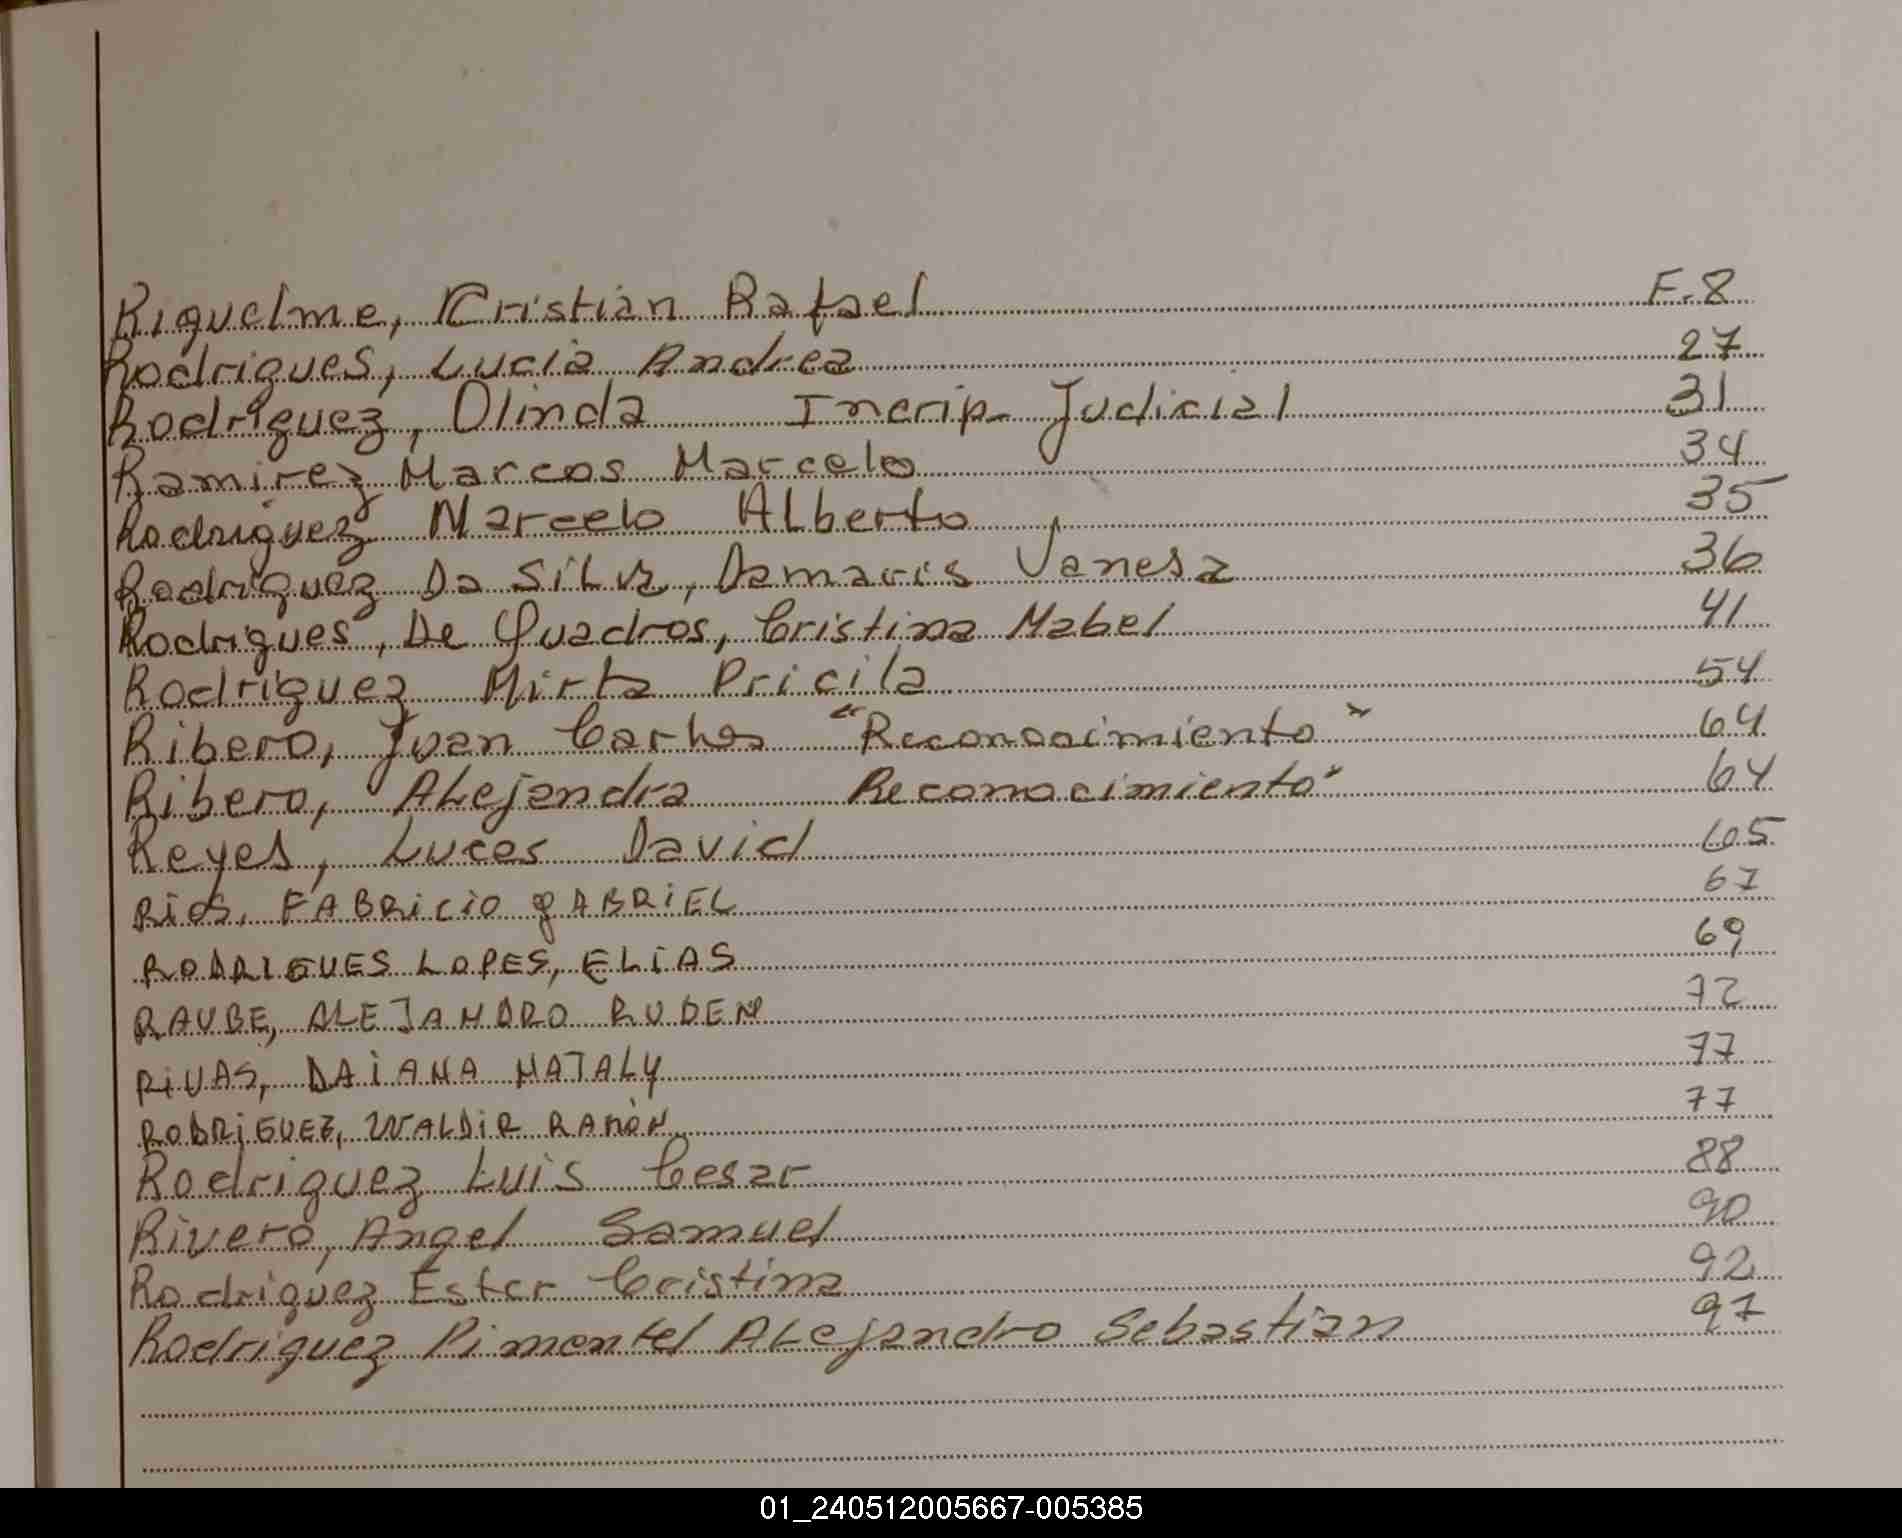 Riquelme, Cristian Rafael F.8
Rodrigues, Lucia Andrea 27
Rodriguez, Olinda Incrip. Judicial 31
Ramirez Marcos Marcelo 34
Rodriguez Marcelo Alberto 35
Rodriguez Da Silva, Damaris Vanesa 36
Rodrigues, De Quadros, Cristina Mabel 41
Rodriguez Mirta Pricila 54
Ribero, Juan Carlos "Reconocimiento" 64
Ribero, Alejandra Reconocimiento" 64
Reyes, Lucas David 65
RÍOS, FABRICIO GABRIEL 67
RODRIGUES LOPES, ELIAS 69
RAUBE, ALEJANDRO RUBEN 72
RIVAS, DAIANA NATALY 77
RODRIGUEZ, WALDIR RAMÓN 77
Rodriguez Luis Cesar 88
Rivero, Angel Samuel 90
Rodriguez Ester Cristina 92
Rodriguez Pimentel Alejandro Sebastian 97
01_240512005667-005385